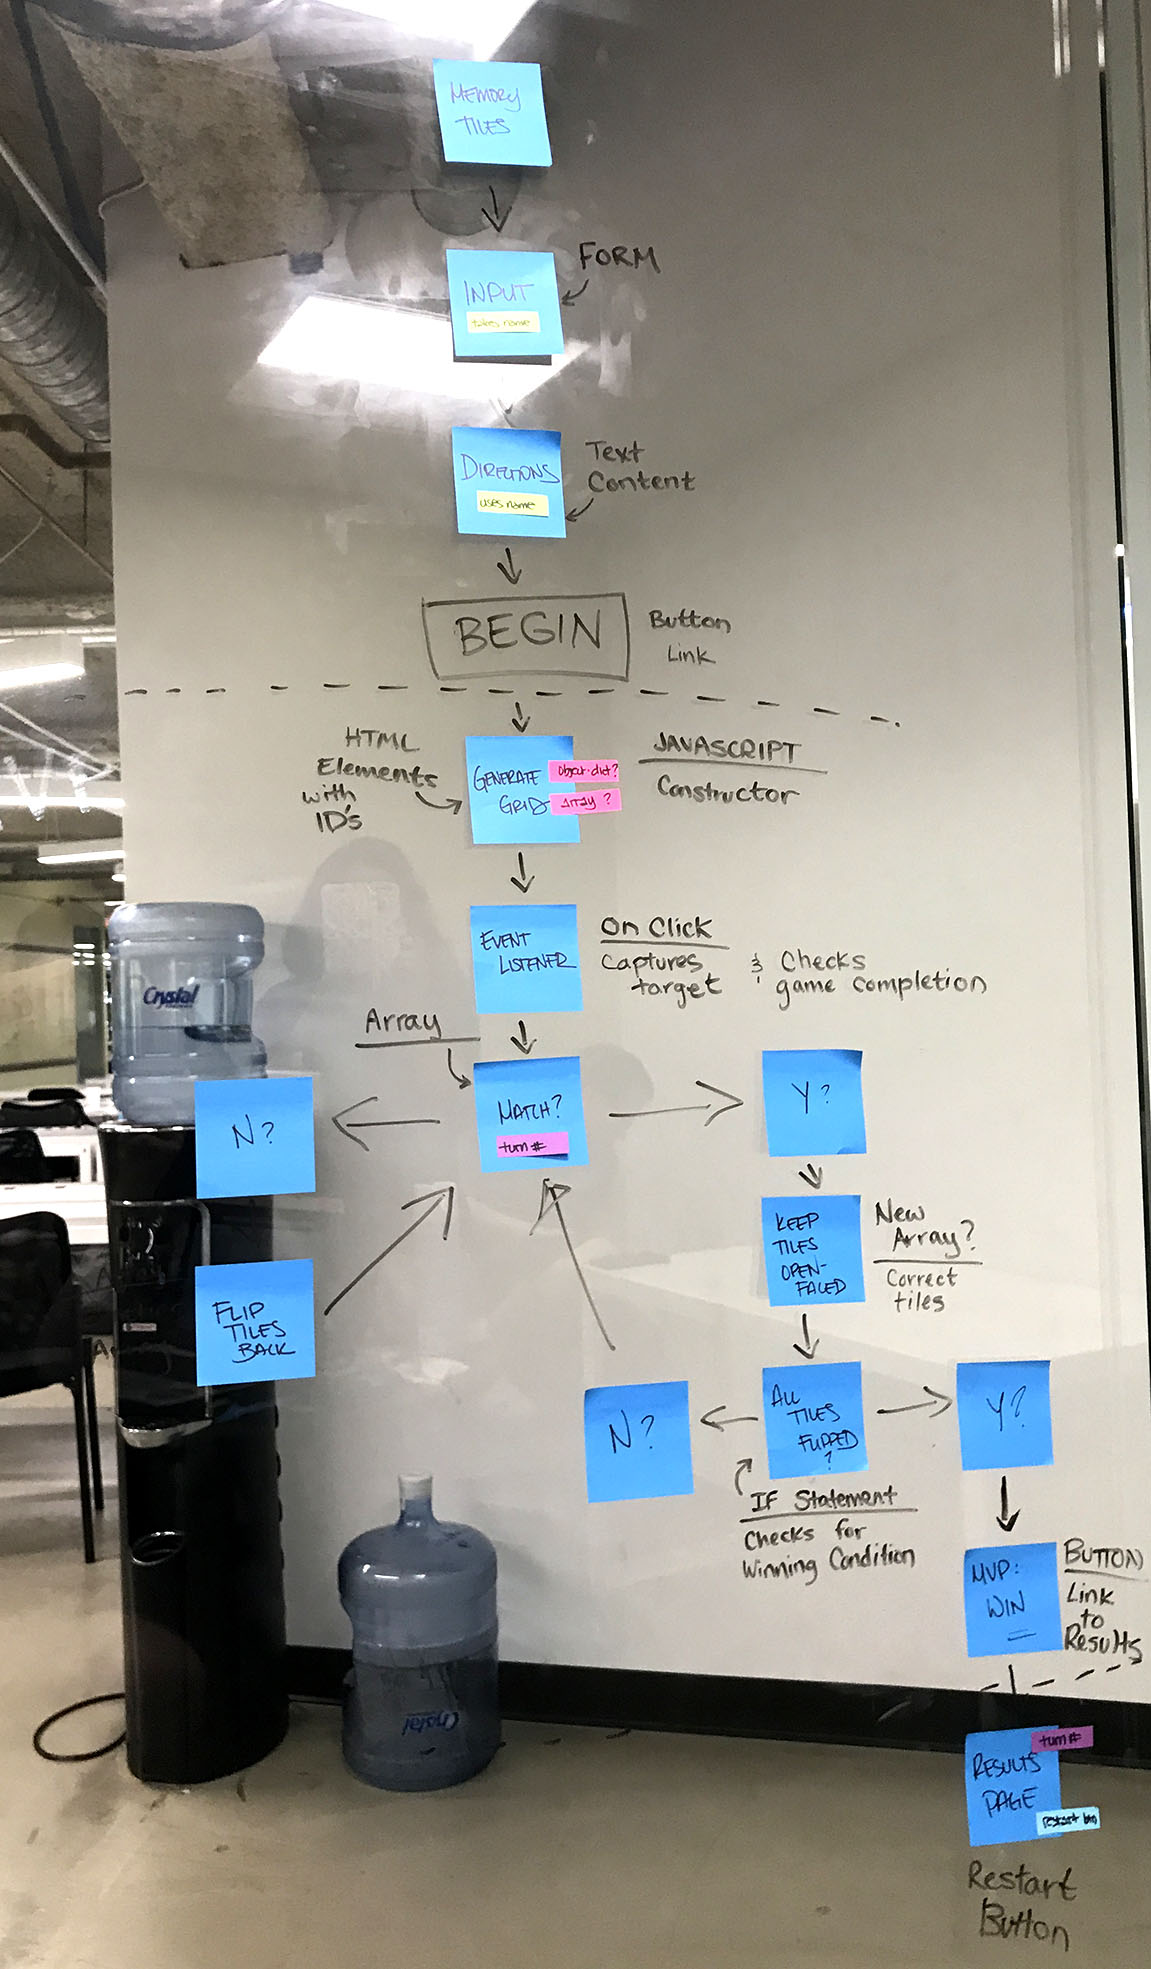 MEMORY
TILES
FORM
INPUT
takes name
DIRECTIONS
uses name
Text
Content
BEGIN
Button
Link
HTML
Elements
with
ID's
GENERATE
GRID
Object-dict?
Array?
JAVASCRIPT
Constructor
EVENT
LISTENER
On Click
Captures
target
& Checks
game completion
Crystal
Array
MATCH?
turn #
N?
Y?
FLIP
TILES
BACK
KEEP
TILES
OPEN-
FACED
New
Array?
Correct
tiles
N?
ALL
TILES
FLIPPED
?
Y?
IF Statement
Checks for
Winning Condition
MVP:
WIN
BUTTON
Link
to
Results
Crystal
RESULTS
PAGE
turn #
restart btn
Restart
Button